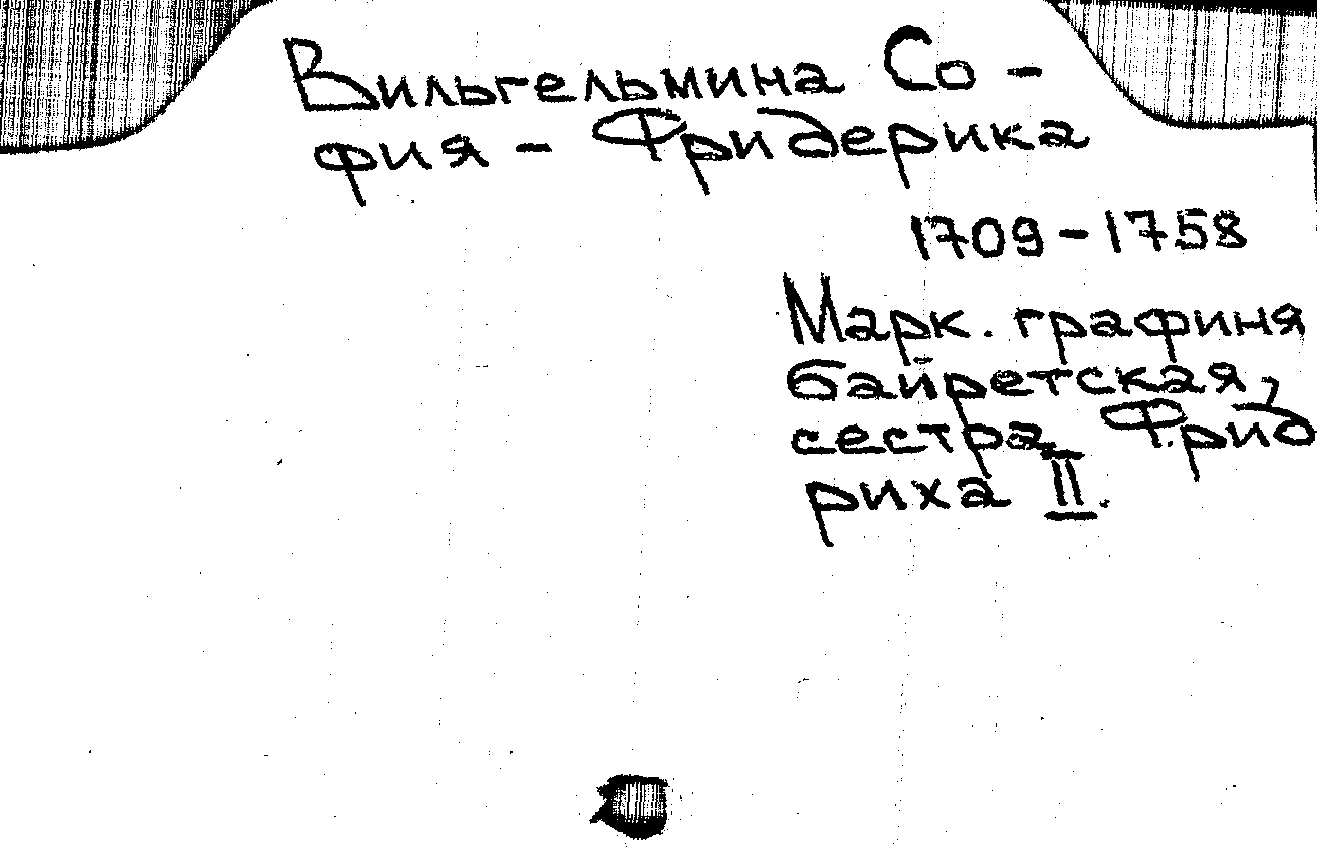 Вильгельмина Со -
фия - Фридерика
1709 - 1758
Марк. графиня
байретская,
сестра Фрид
риха II.